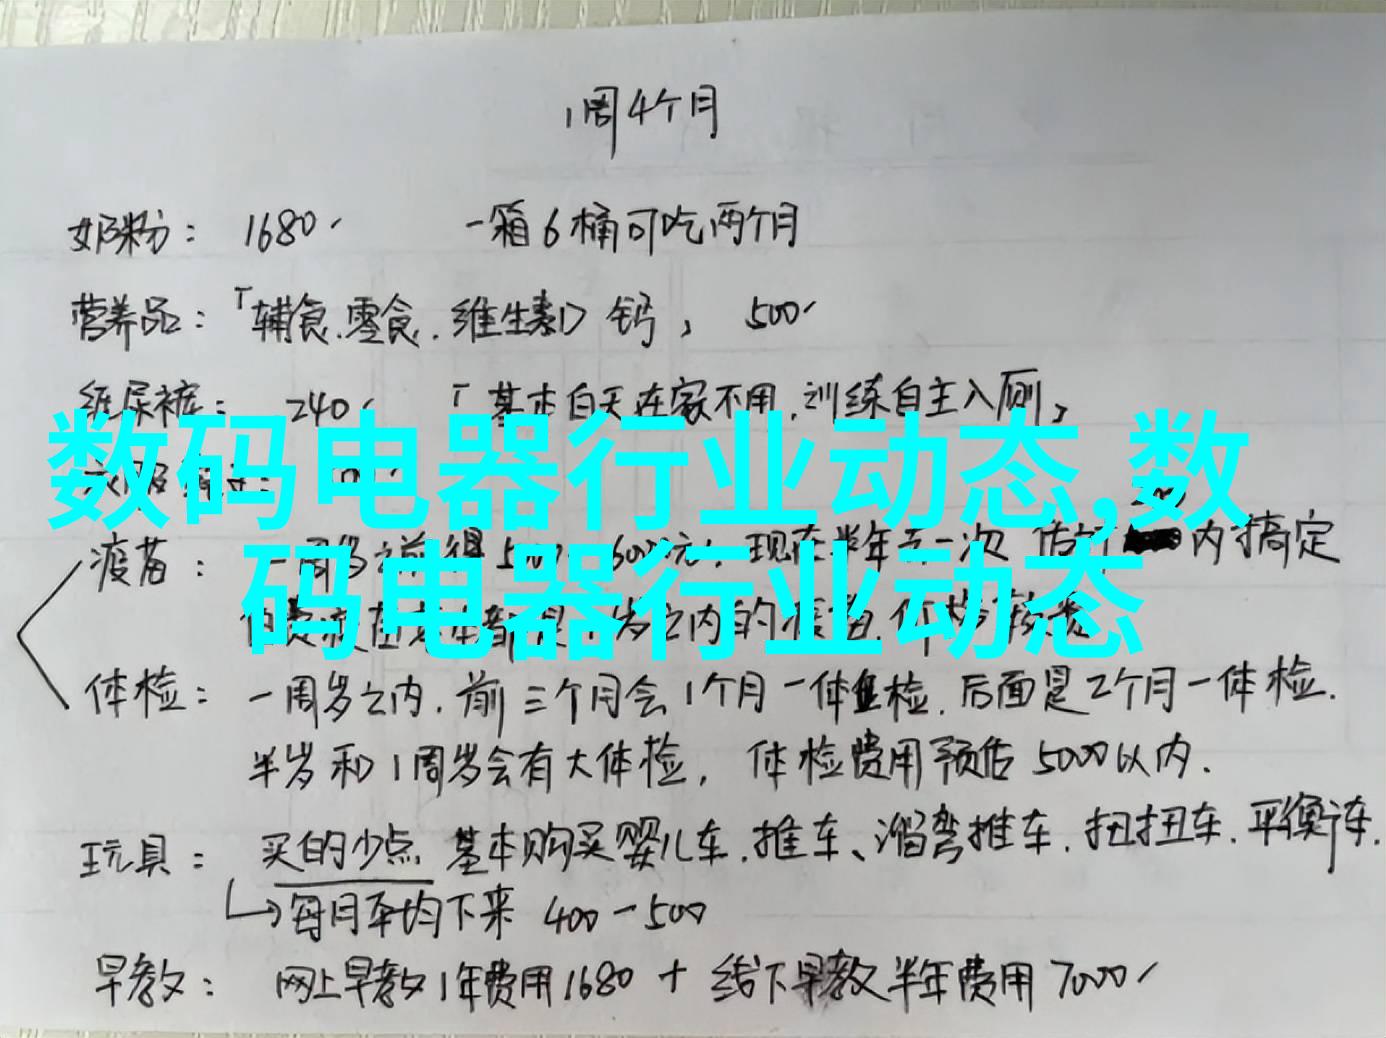 1周4个月
奶粉： 1680、 一箱6桶可吃两个月
营养品：「辅食.零食.维生素D 钙」 500、
纸尿裤： 240、 「基本白天在家不用，训练自主入厕」
数码电器行业动态,数
码电器行业动态
疫苗： 一周岁之前得 内搞定
之内的疫苗.价格较贵
体检： 一周岁之内.前三个月会1个月一体检.后面是2个月一体检.
半岁和1周岁会有大体检， 体检费用预估5000以内.
玩具： 买的少点 基本购买婴儿车.推车、溜弯推车.扭扭车.平衡车.
每月平均下来 400-500
早教： 网上早教1年费用1680 + 线下早教半年费用7000、